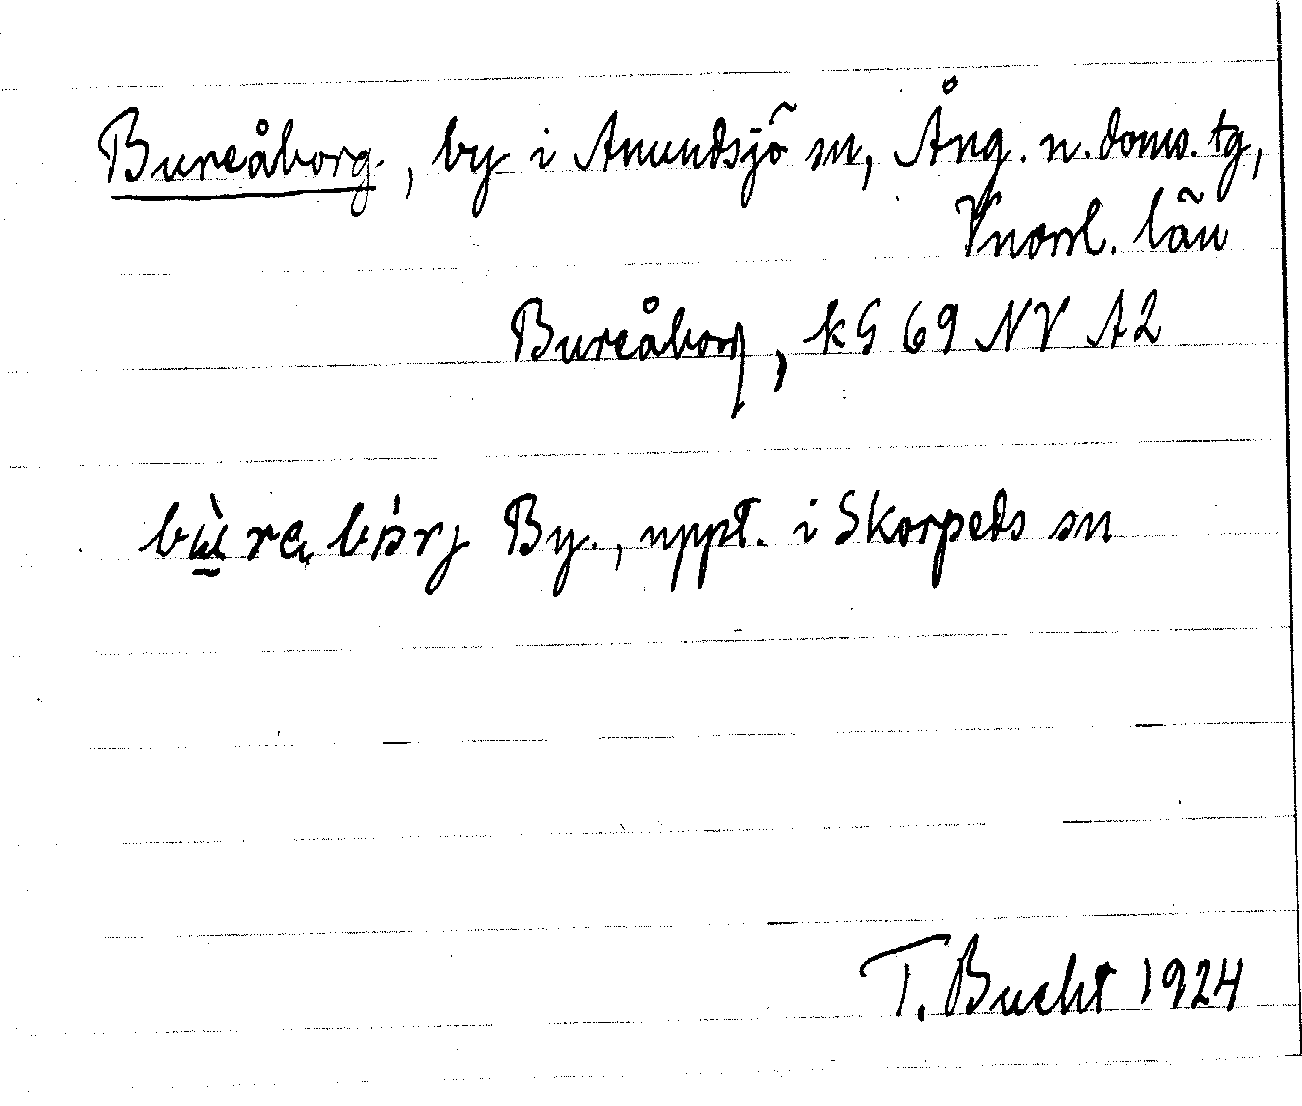 Bureåborg, by i Anundsjö sn, Ång. n. doms. tg,
Vnorrl. län
Bureåborg, kG 69 NV A2
By., uppt. i Skorpeds sn
T. Bucht 1924